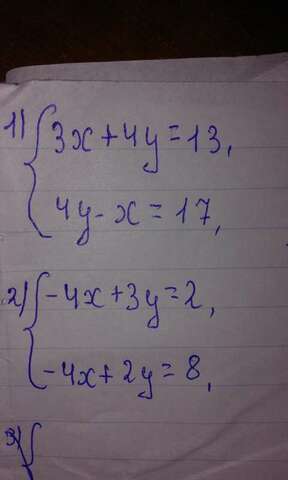 1) { 3x+4y=13,
4y-x=17,
2) { -4x+3y=2,
-4x+2y=8,
3) {